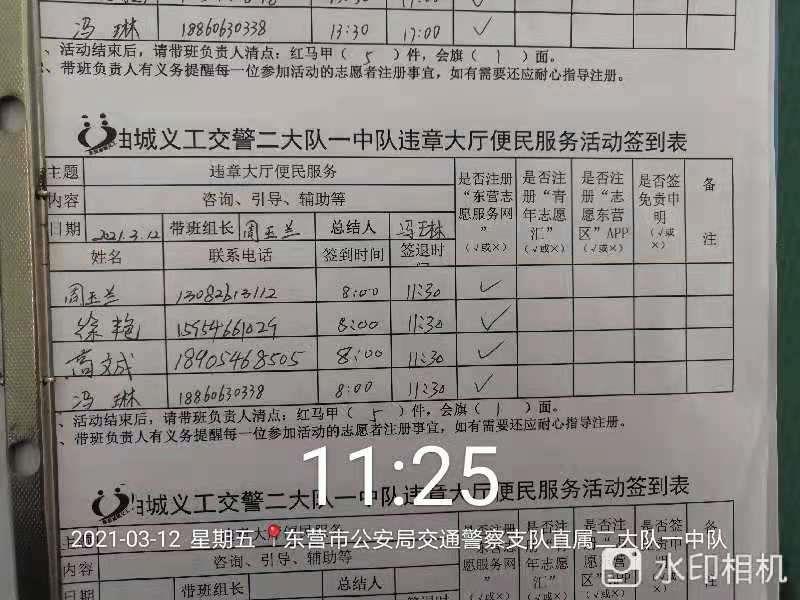 冯琳 18860630338 13:30 17:00 ✓
、活动结束后，请带班负责人清点：红马甲（ 5 ）件，会旗（ 1 ）面。
、带班负责人有义务提醒每一位参加活动的志愿者注册事宜，如有需要还应耐心指导注册。
油城义工交警二大队一中队违章大厅便民服务活动签到表
主题 违章大厅便民服务 是否注册“东营志愿服务网”（√或×） 是否注册“青年志愿汇”（√或×） 是否注册“志愿东营区”APP（√或×） 是否签免责申明（√或×） 备注
内容 咨询、引导、辅助等
日期 2021.3.12 带班组长 周玉兰 总结人 冯琳
姓名 联系电话 签到时间 签退时
周玉兰 13082613112 8:00 11:30 ✓
徐艳 15954661029 8:00 11:30 ✓
高文成 18905468505 8:00 11:30 ✓
冯琳 18860630338 8:00 11:30 ✓
、活动结束后，请带班负责人清点：红马甲（ 5 ）件，会旗（ 1 ）面。
、带班负责人有义务提醒每一位参加活动的志愿者注册事宜，如有需要还应耐心指导注册。
11:25
油城义工交警二大队一中队违章大厅便民服务活动签到表
2021-03-12 星期五 东营市公安局交通警察支队直属二大队一中队
内容 咨询、引导、辅助等
日期 带班组长 总结人
水印相机